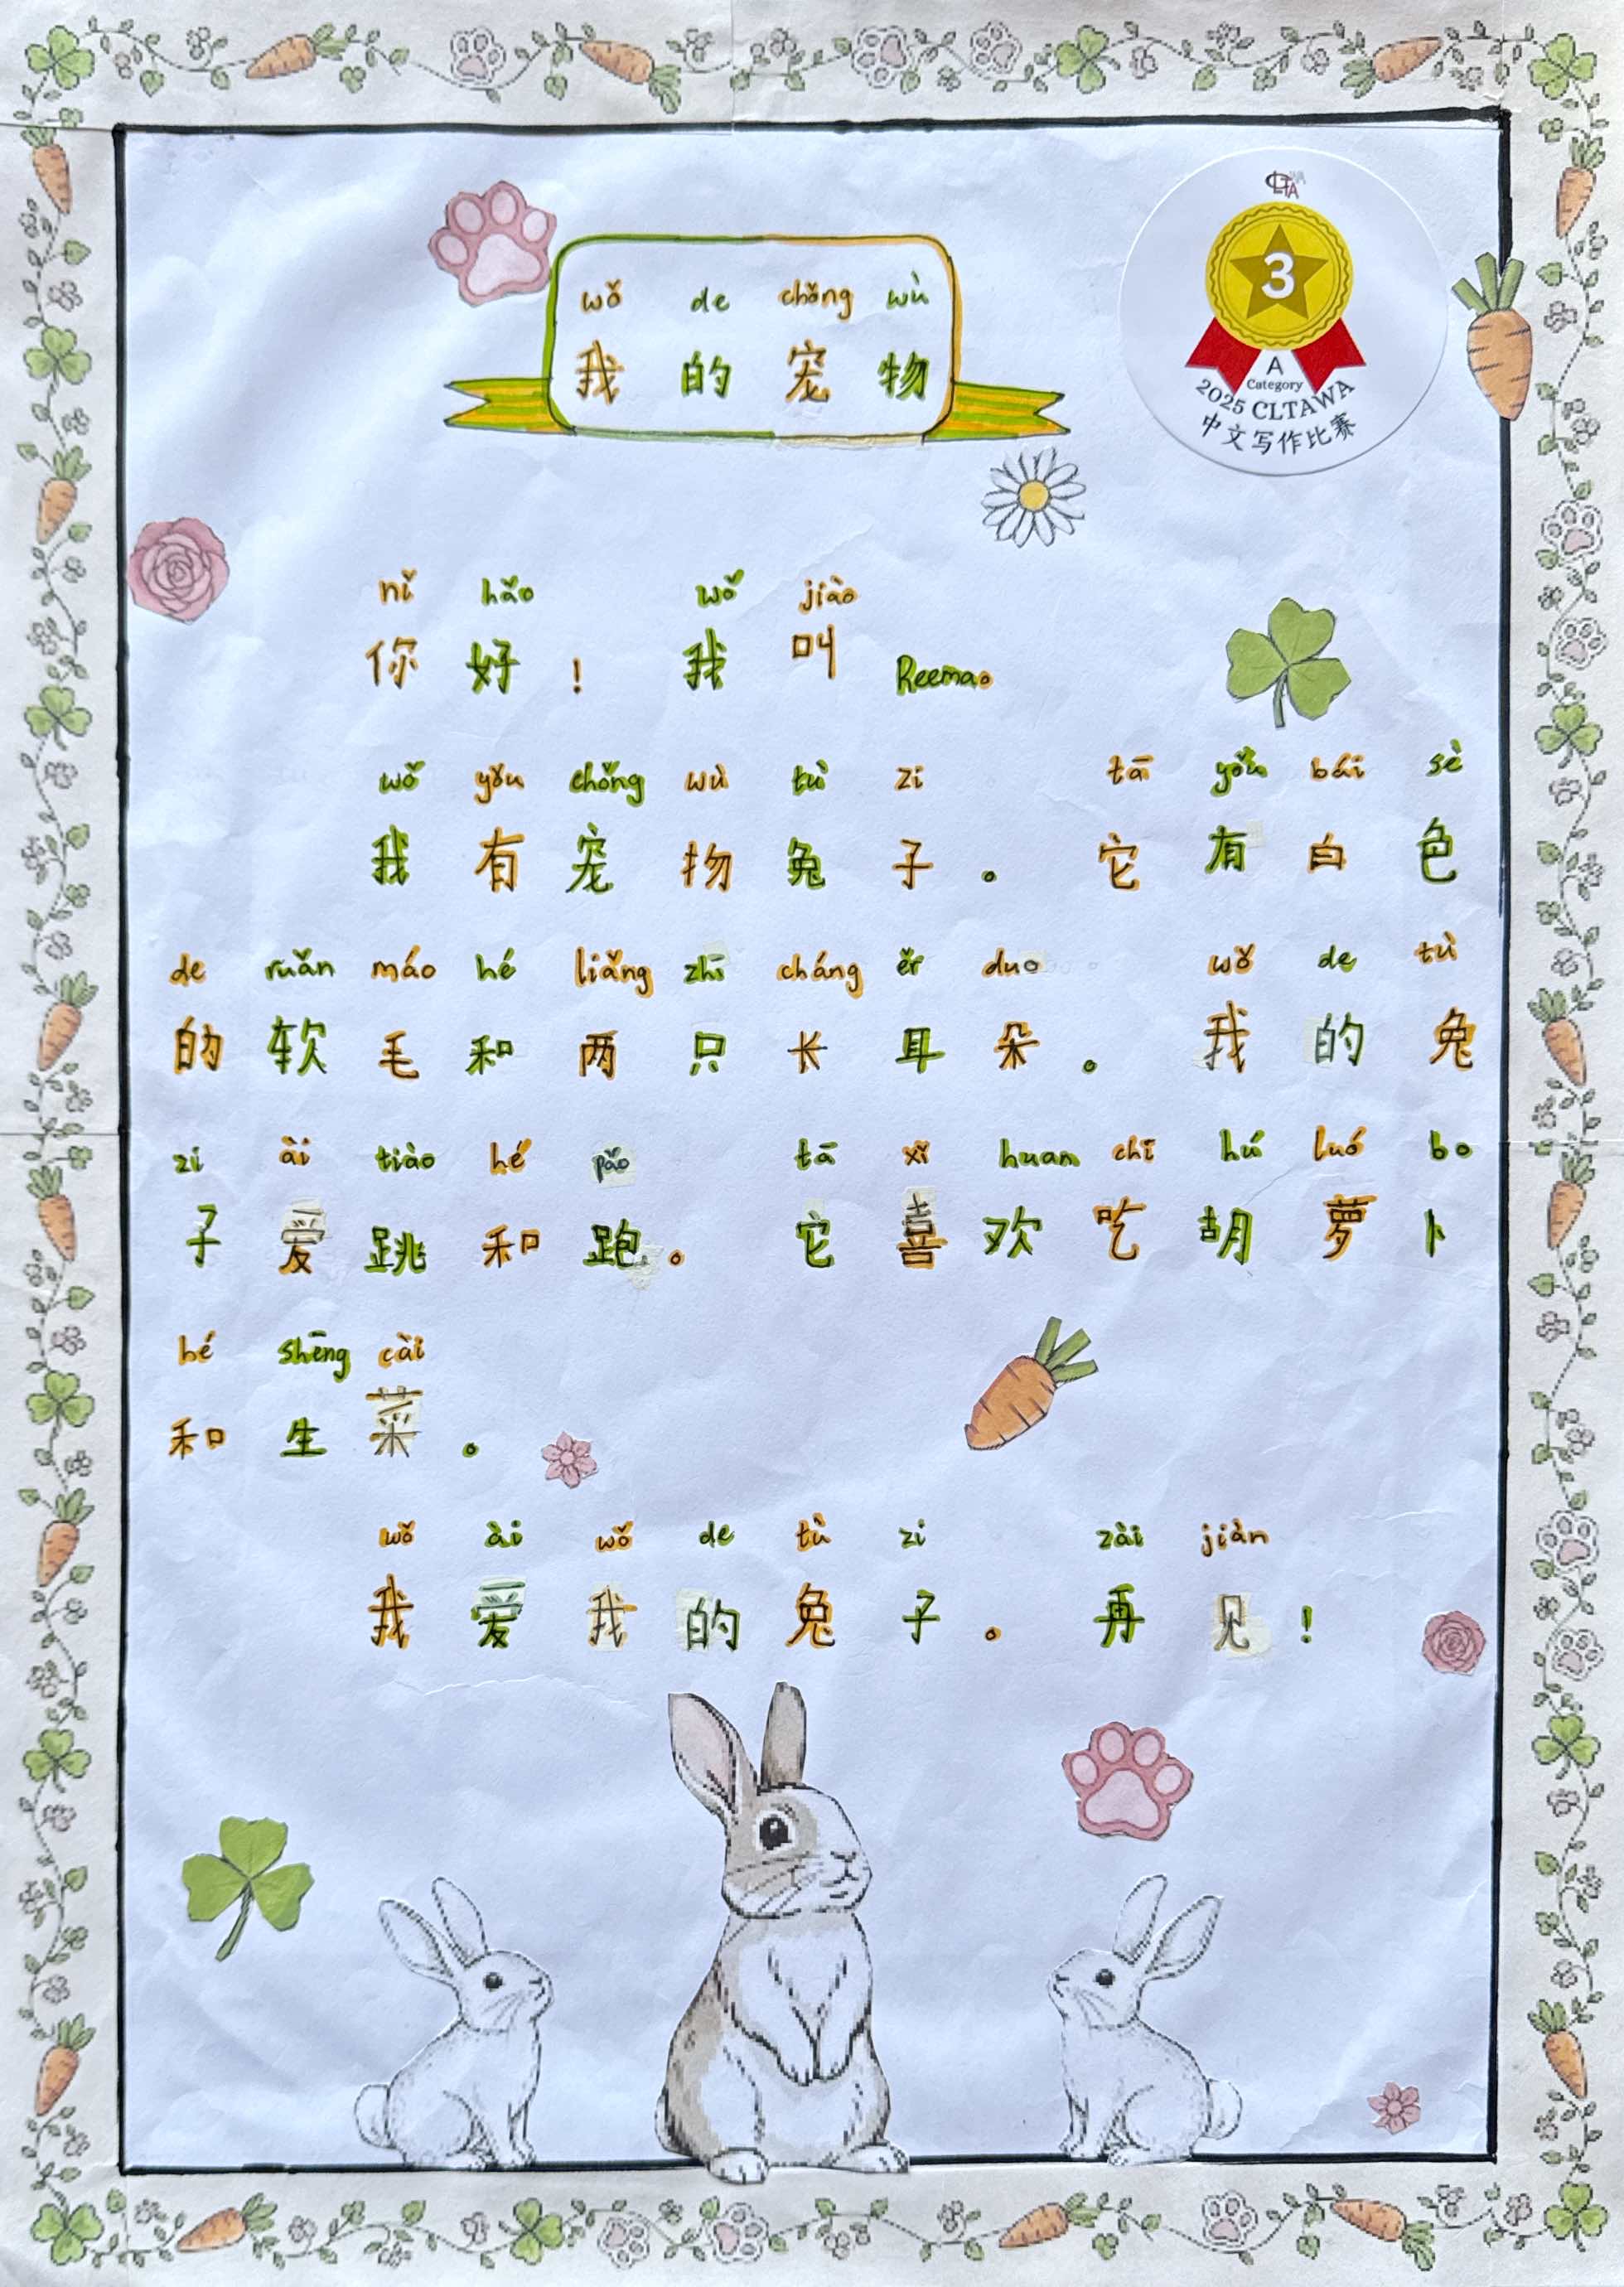 wǒ de chǒng wù
我 的 宠 物
CLTAWA
3
A
Category
2025 CLTAWA
中文写作比赛
nǐ hǎo wǒ jiào
你 好 ! 我 叫 Reema。
wǒ yǒu chǒng wù tù zi tā yǒu bái sè
我 有 宠 物 兔 子 。 它 有 白 色
de ruǎn máo hé liǎng zhī cháng ěr duo wǒ de tù
的 软 毛 和 两 只 长 耳 朵 。 我 的 兔
zi ài tiào hé pǎo tā xǐ huan chī hú luó bo
子 爱 跳 和 跑 。 它 喜 欢 吃 胡 萝 卜
hé shēng cài
和 生 菜 。
wǒ ài wǒ de tù zi zài jiàn
我 爱 我 的 兔 子 。 再 见 !